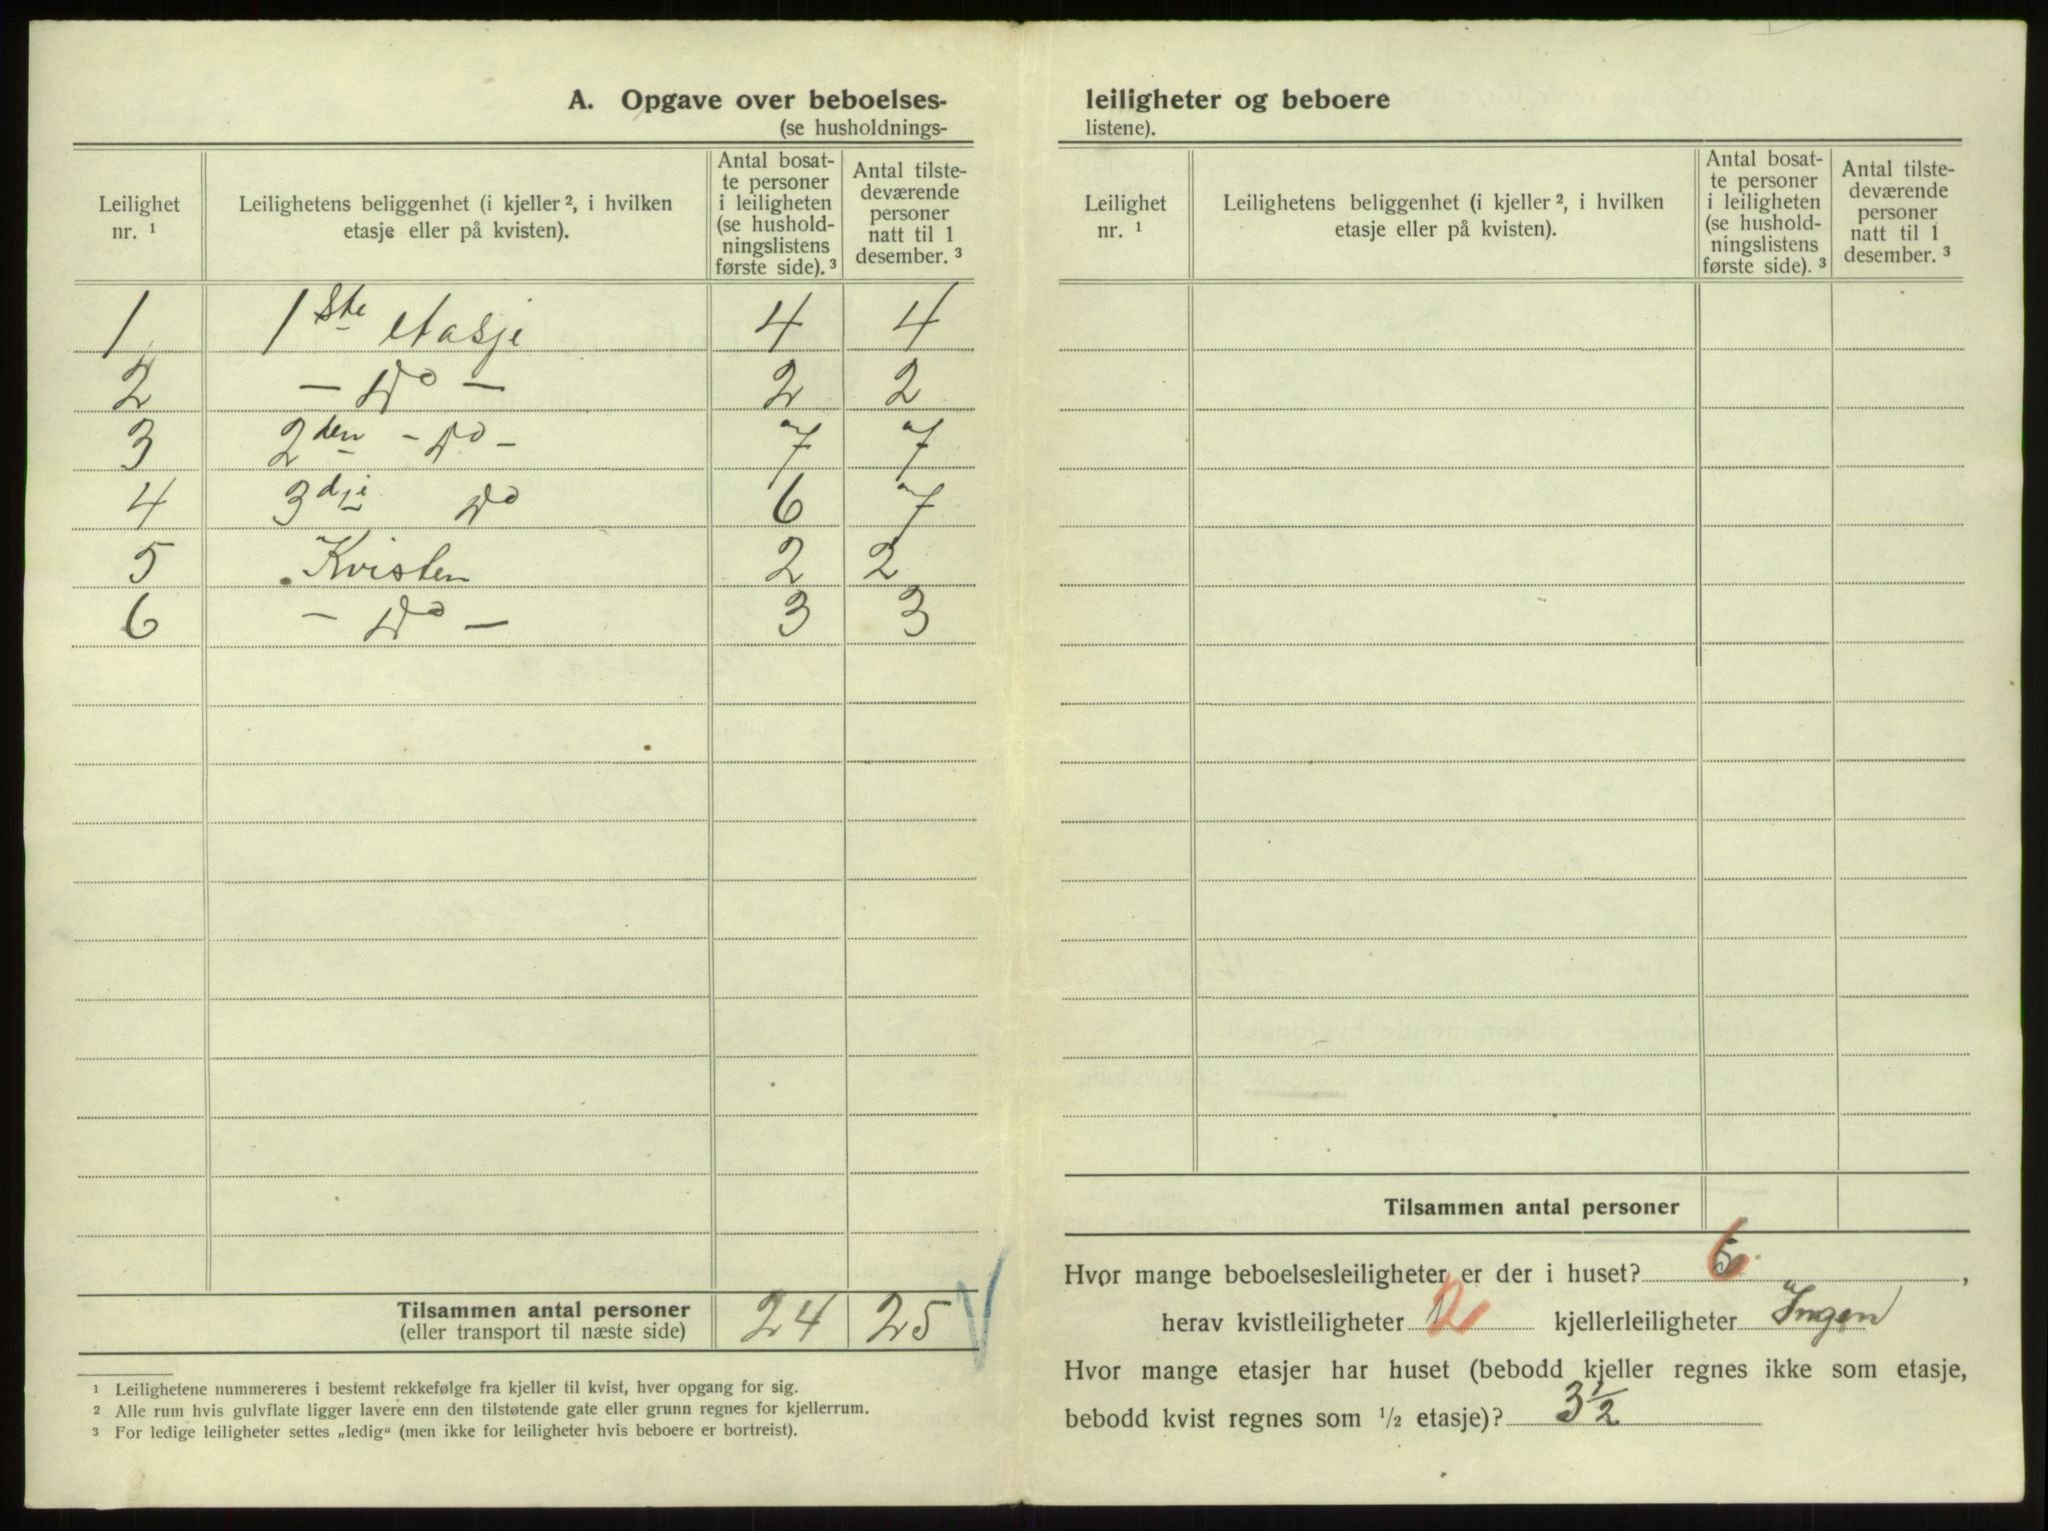 A. Opgave over beboelses-
(se husholdnings-
Leilighet nr. ¹
Leilighetens beliggenhet (i kjeller ², i hvilken etasje eller på kvisten).
Antal bosat-
te personer
i leiligheten
(se hushold-
ningslistens
første side). ³
Antal tilste-
deværende
personer
natt til 1
desember. ³
1 1ste etasje 4 4
2 — Do — 2 2
3 2den - Do - 7 7
4 3dje Do 6 7
5 Kvisten 2 2
6 — Do — 3 3
Tilsammen antal personer 24 25
(eller transport til næste side)
¹ Leilighetene nummereres i bestemt rekkefølge fra kjeller til kvist, hver opgang for sig.
² Alle rum hvis gulvflate ligger lavere enn den tilstøtende gate eller grunn regnes for kjellerrum.
³ For ledige leiligheter settes „ledig“ (men ikke for leiligheter hvis beboere er bortreist).
leiligheter og beboere
listene).
Leilighet nr. ¹
Leilighetens beliggenhet (i kjeller ², i hvilken etasje eller på kvisten).
Antal bosat-
te personer
i leiligheten
(se hushold-
ningslistens
første side). ³
Antal tilste-
deværende
personer
natt til 1
desember. ³
Tilsammen antal personer
Hvor mange beboelsesleiligheter er der i huset? 6,
herav kvistleiligheter 2 kjellerleiligheter Ingen
Hvor mange etasjer har huset (bebodd kjeller regnes ikke som etasje,
bebodd kvist regnes som ½ etasje)? 3½